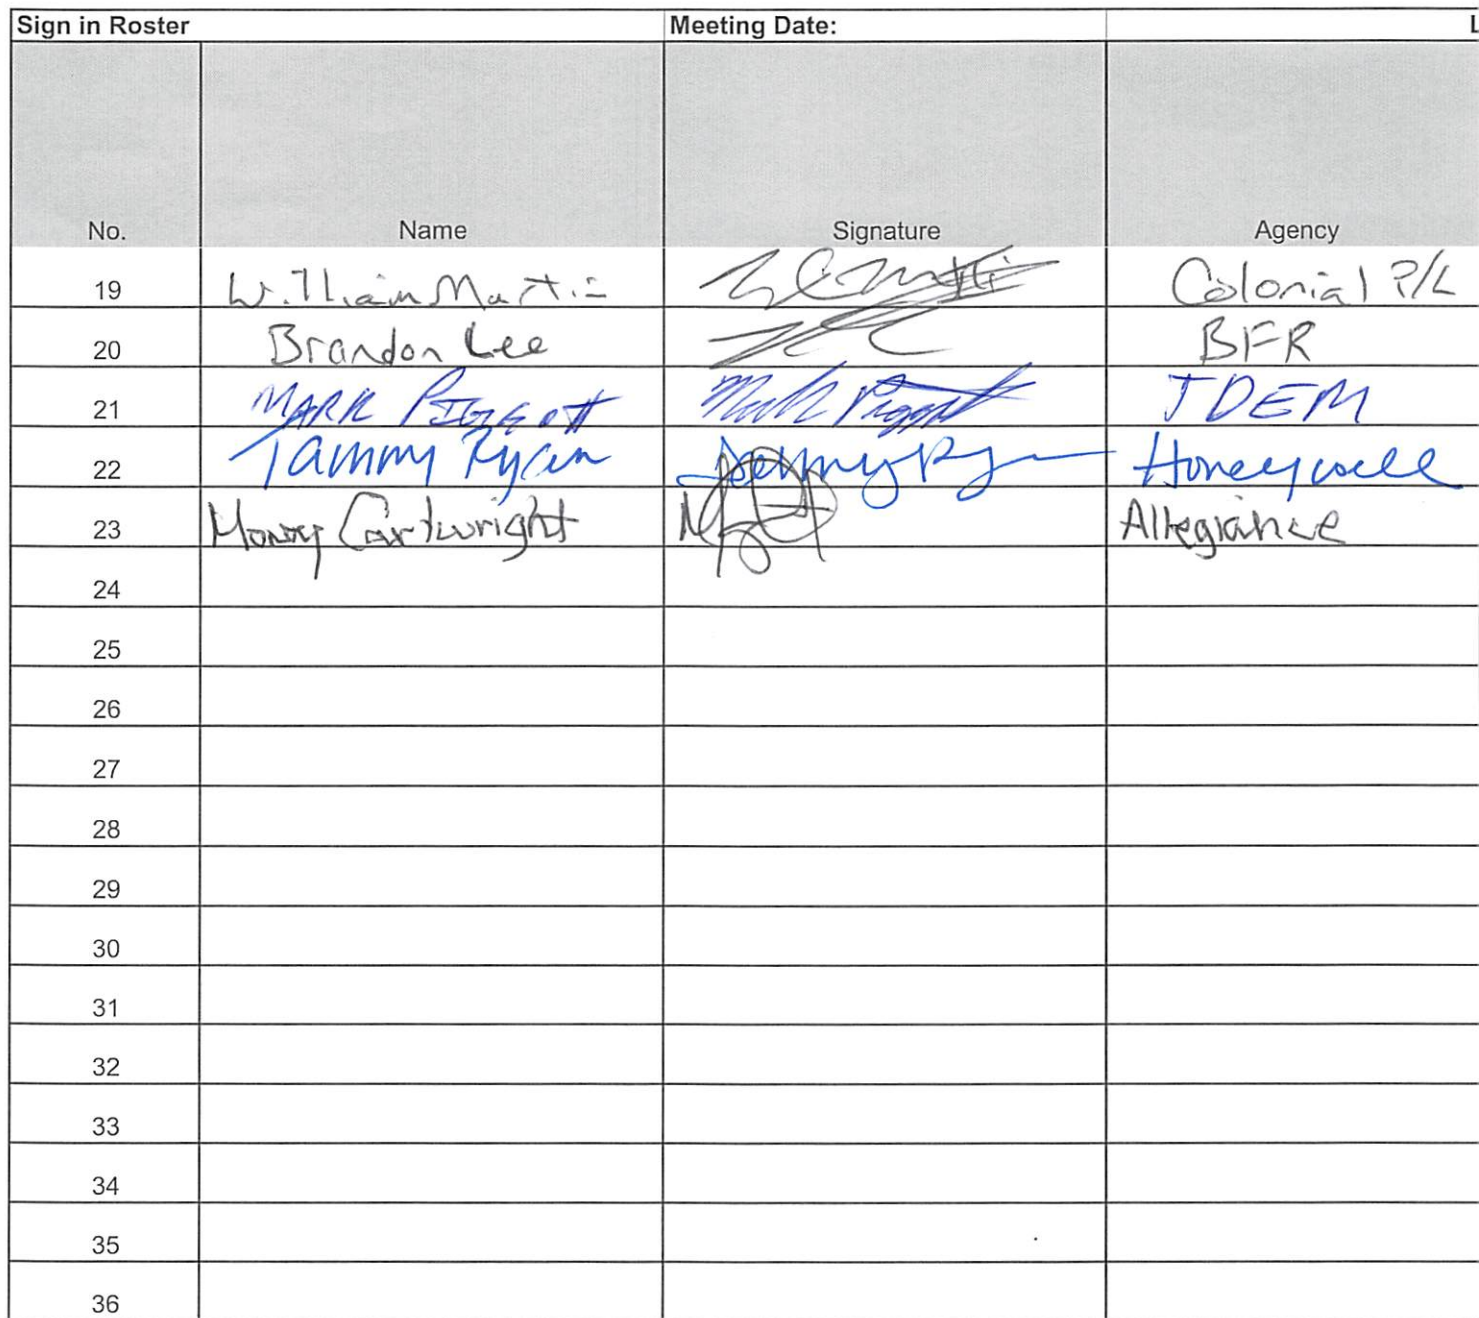 Sign in Roster Meeting Date: L
No. Name Signature Agency
19 William Martin Colonial P/L
20 Brandon Lee BFR
21 MARK PIGGOTT Mark Piggott JDEM
22 Tammy Ryan Tammy Ryan Honeywell
23 Cartwright Allegiance
24
25
26
27
28
29
30
31
32
33
34
35
36